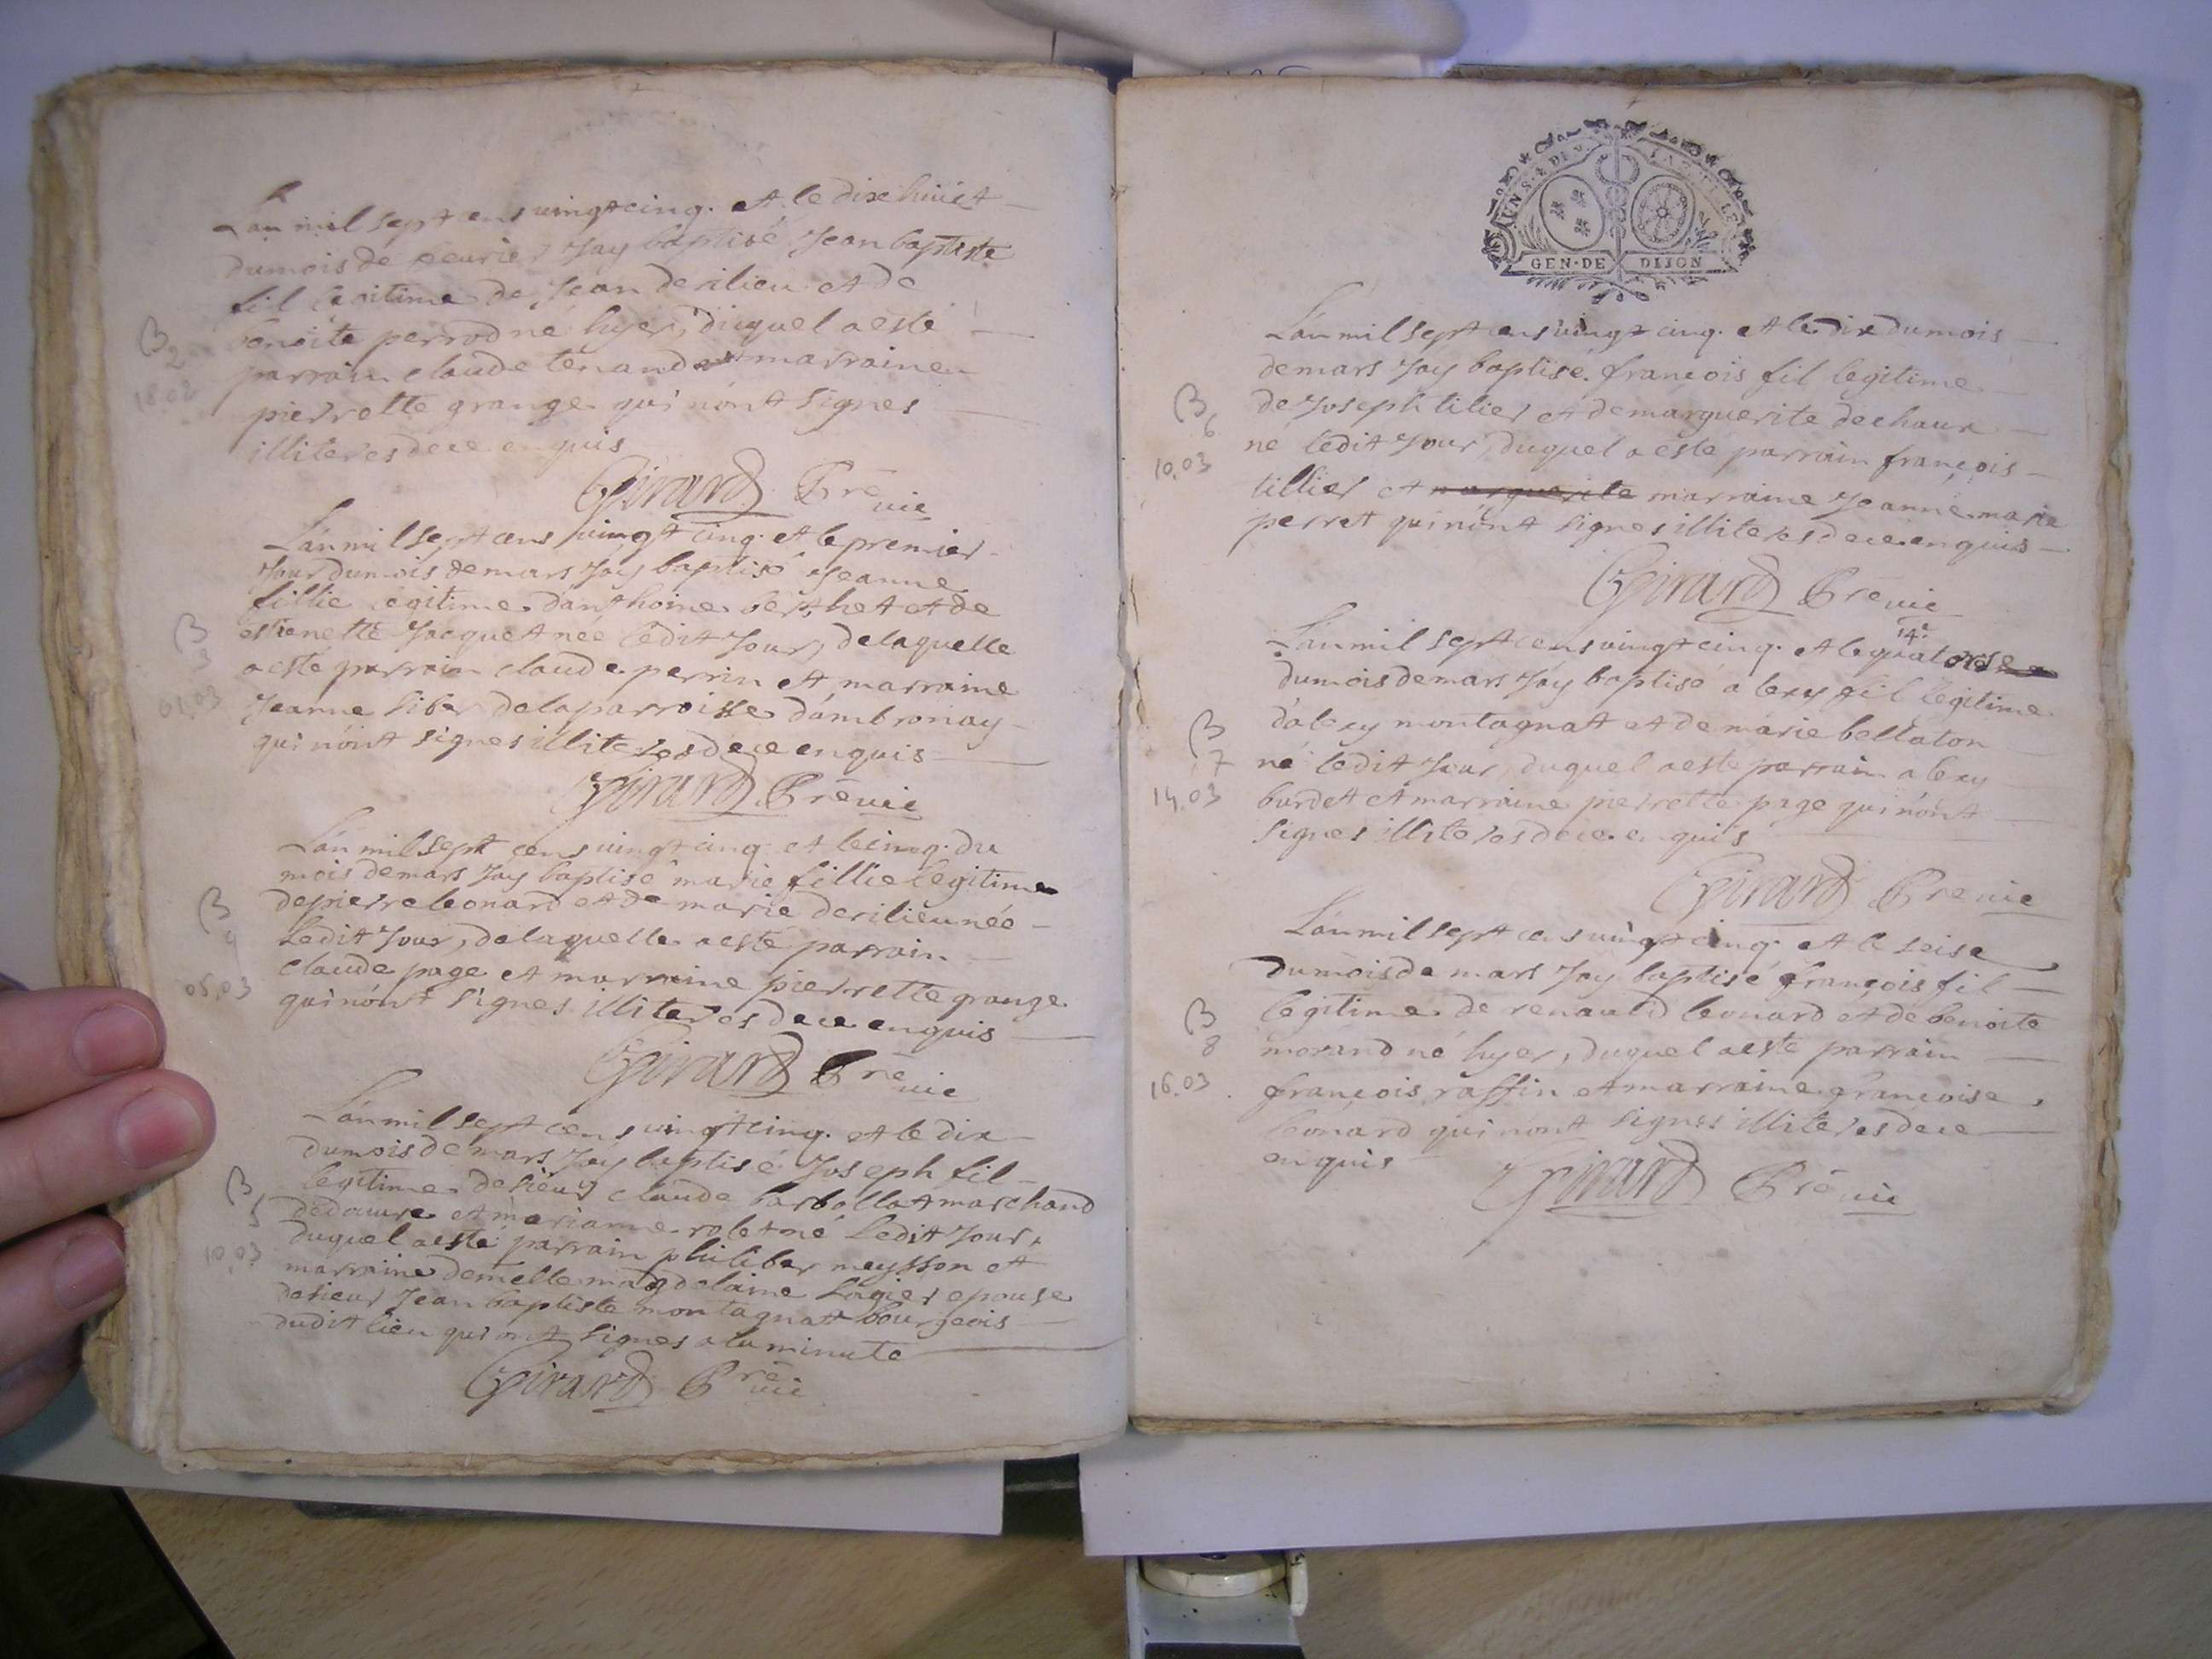 L'an mil sept cens vingt cinq. et le dix huict
du mois de feurier J'ay baptisé Jean baptiste
fil legitime de Jean derilieu et de
benoite perrod né hyer, duquel a esté
parrain claude tenand et marraine
pierrette grange qui n'ont signes
illiteres de ce enquis
Girard Prē vic
B
2
18.02
L'an mil sept cens vingt cinq. et le premier
Jour du mois de mars J'ay baptisé Jeanne
fillie legitime d'anthoine berthet et de
estienette Jacquet née ledit Jour, de laquelle
a esté parrain claude perrin et marraine
Jeanne siber de la parroisse d'ambronay
qui n'ont signes illiteres de ce enquis
Girard Prē vic
B
3
01.03
L'an mil sept cens vingt cinq et le cinq. du
mois de mars J'ay baptisé marie fillie legitime
de pierre leonard et de marie derilieu née
ledit Jour, de laquelle a esté parrain
claude page et marraine pierrette grange
qui n'ont signes illiteres de ce enquis
Girard Prē vic
B
4
05.03
L'an mil sept cens vingt cinq. et le dix
du mois de mars J'ay baptisé Joseph fil
legitime de sieur claude barbollat marchand
et marianne robet né ledit Jour,
duquel a esté parrain philiber meysson et
marraine demelle magdelaine epouse
de sieur Jean baptiste montagnat bourgeois
dudit lieu qui ont signes a la minute
Girard Prē vic
B
5
10.03
GEN·DE DIJON
L'an mil sept cens vingt cinq. et le dix du mois
de mars J'ay baptisé françois fil legitime
de Joseph tilier et de marguerite dechaux
né ledit Jour, duquel a esté parrain françois
tillier et marguerite marraine Jeanne marie
perret qui n'ont signes illiteres de ce enquis
Girard Prē vic
B
6
10.03
14e
L'an mil sept cens vingt cinq. et le quatorse
du mois de mars J'ay baptisé alexy fil legitime
d'alexy montagnat et de marie bellaton
né ledit Jour, duquel a esté parrain alexy
burdet et marraine pierrette page qui n'ont
signes illiteres de ce enquis
Girard Prē vic
B
7
14.03
L'an mil sept cens vingt cinq. et le seise
du mois de mars J'ay baptisé françois fil
legitime de renauld leonard et de benoite
morand né hyer, duquel a esté parrain
françois raffin et marraine françoise
leonard qui n'ont signes illiteres de ce
enquis
Girard Prē vic
B
8
16.03